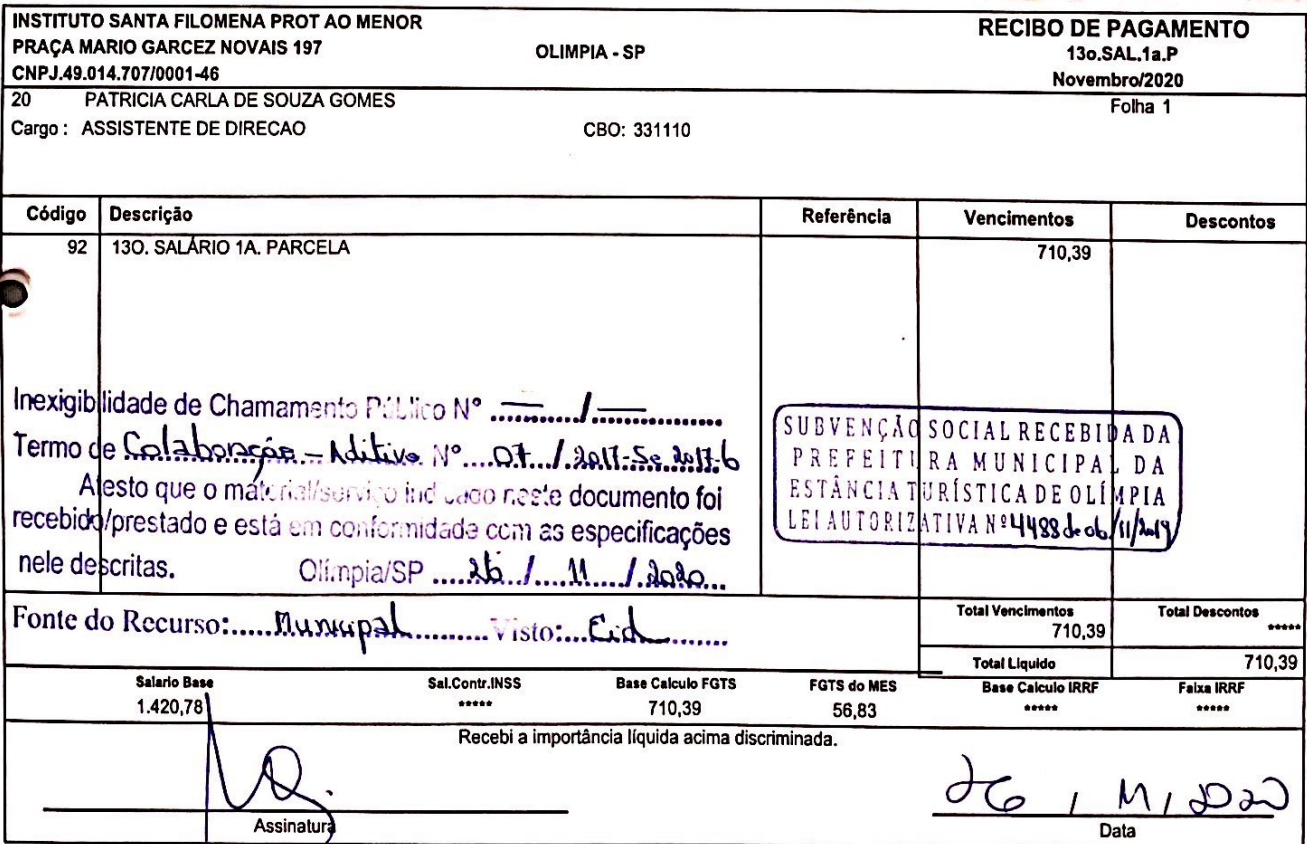 INSTITUTO SANTA FILOMENA PROT AO MENOR
PRAÇA MARIO GARCEZ NOVAIS 197
CNPJ.49.014.707/0001-46
OLIMPIA - SP
RECIBO DE PAGAMENTO
13o.SAL.1a.P
Novembro/2020
20 PATRICIA CARLA DE SOUZA GOMES
Folha 1
Cargo : ASSISTENTE DE DIRECAO CBO: 331110
Código Descrição Referência Vencimentos Descontos
92 13O. SALÁRIO 1A. PARCELA 710,39
Inexigibilidade de Chamamento Público Nº — / —
Termo de Colaboração - Aditivo Nº 07 / 2017-
Atesto que o material/serviço indicado neste documento foi
recebido/prestado e está em conformidade com as especificações
nele descritas. Olímpia/SP 26 / 11 / 2020
SUBVENÇÃO SOCIAL RECEBIDA DA
PREFEITURA MUNICIPAL DA
ESTÂNCIA TURÍSTICA DE OLÍMPIA
LEI AUTORIZATIVA Nº 4488 de 06/11/2019
Fonte do Recurso: Municipal Visto:
Total Vencimentos Total Descontos
710,39 *****
Total Liquido 710,39
Salario Base Sal.Contr.INSS Base Calculo FGTS FGTS do MES Base Calculo IRRF Faixa IRRF
1.420,78 ***** 710,39 56,83 ***** *****
Recebi a importância líquida acima discriminada.
26 / 11 / 2020
Assinatura Data